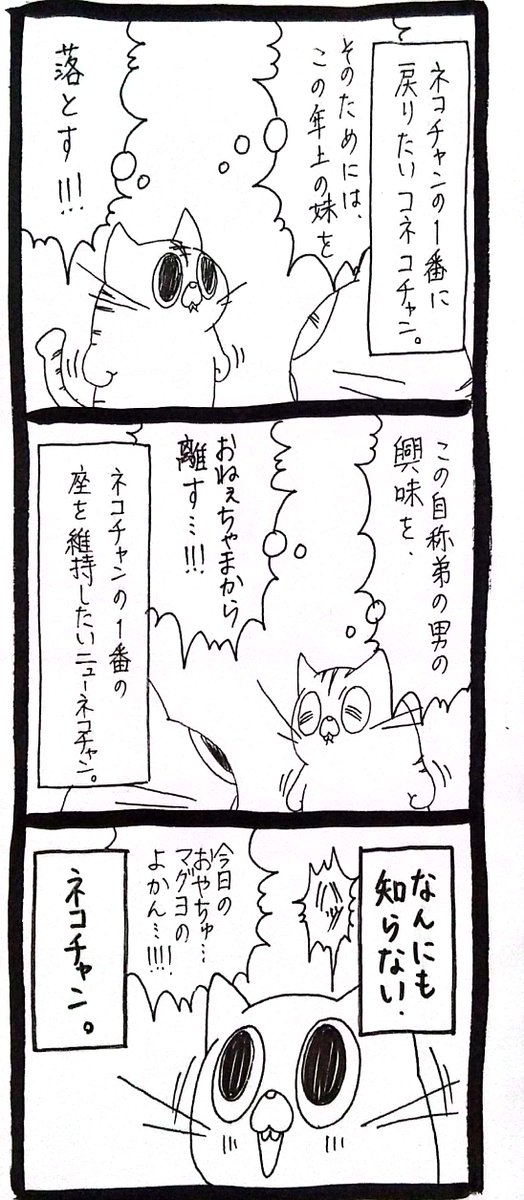 ネコチャンの1番に
戻りたいコネコチャン。
そのためには、
この年上の妹を
落とす!!!
この自称弟の男の
興味を、
おねぇちゃまから
離す…!!!
ネコチャンの1番の
座を維持したいニューネコチャン。
なんにも
知らない、
ハッ
今日の
おやちゅ…
マグヨの
よかん…!!!!
ネコチャン。